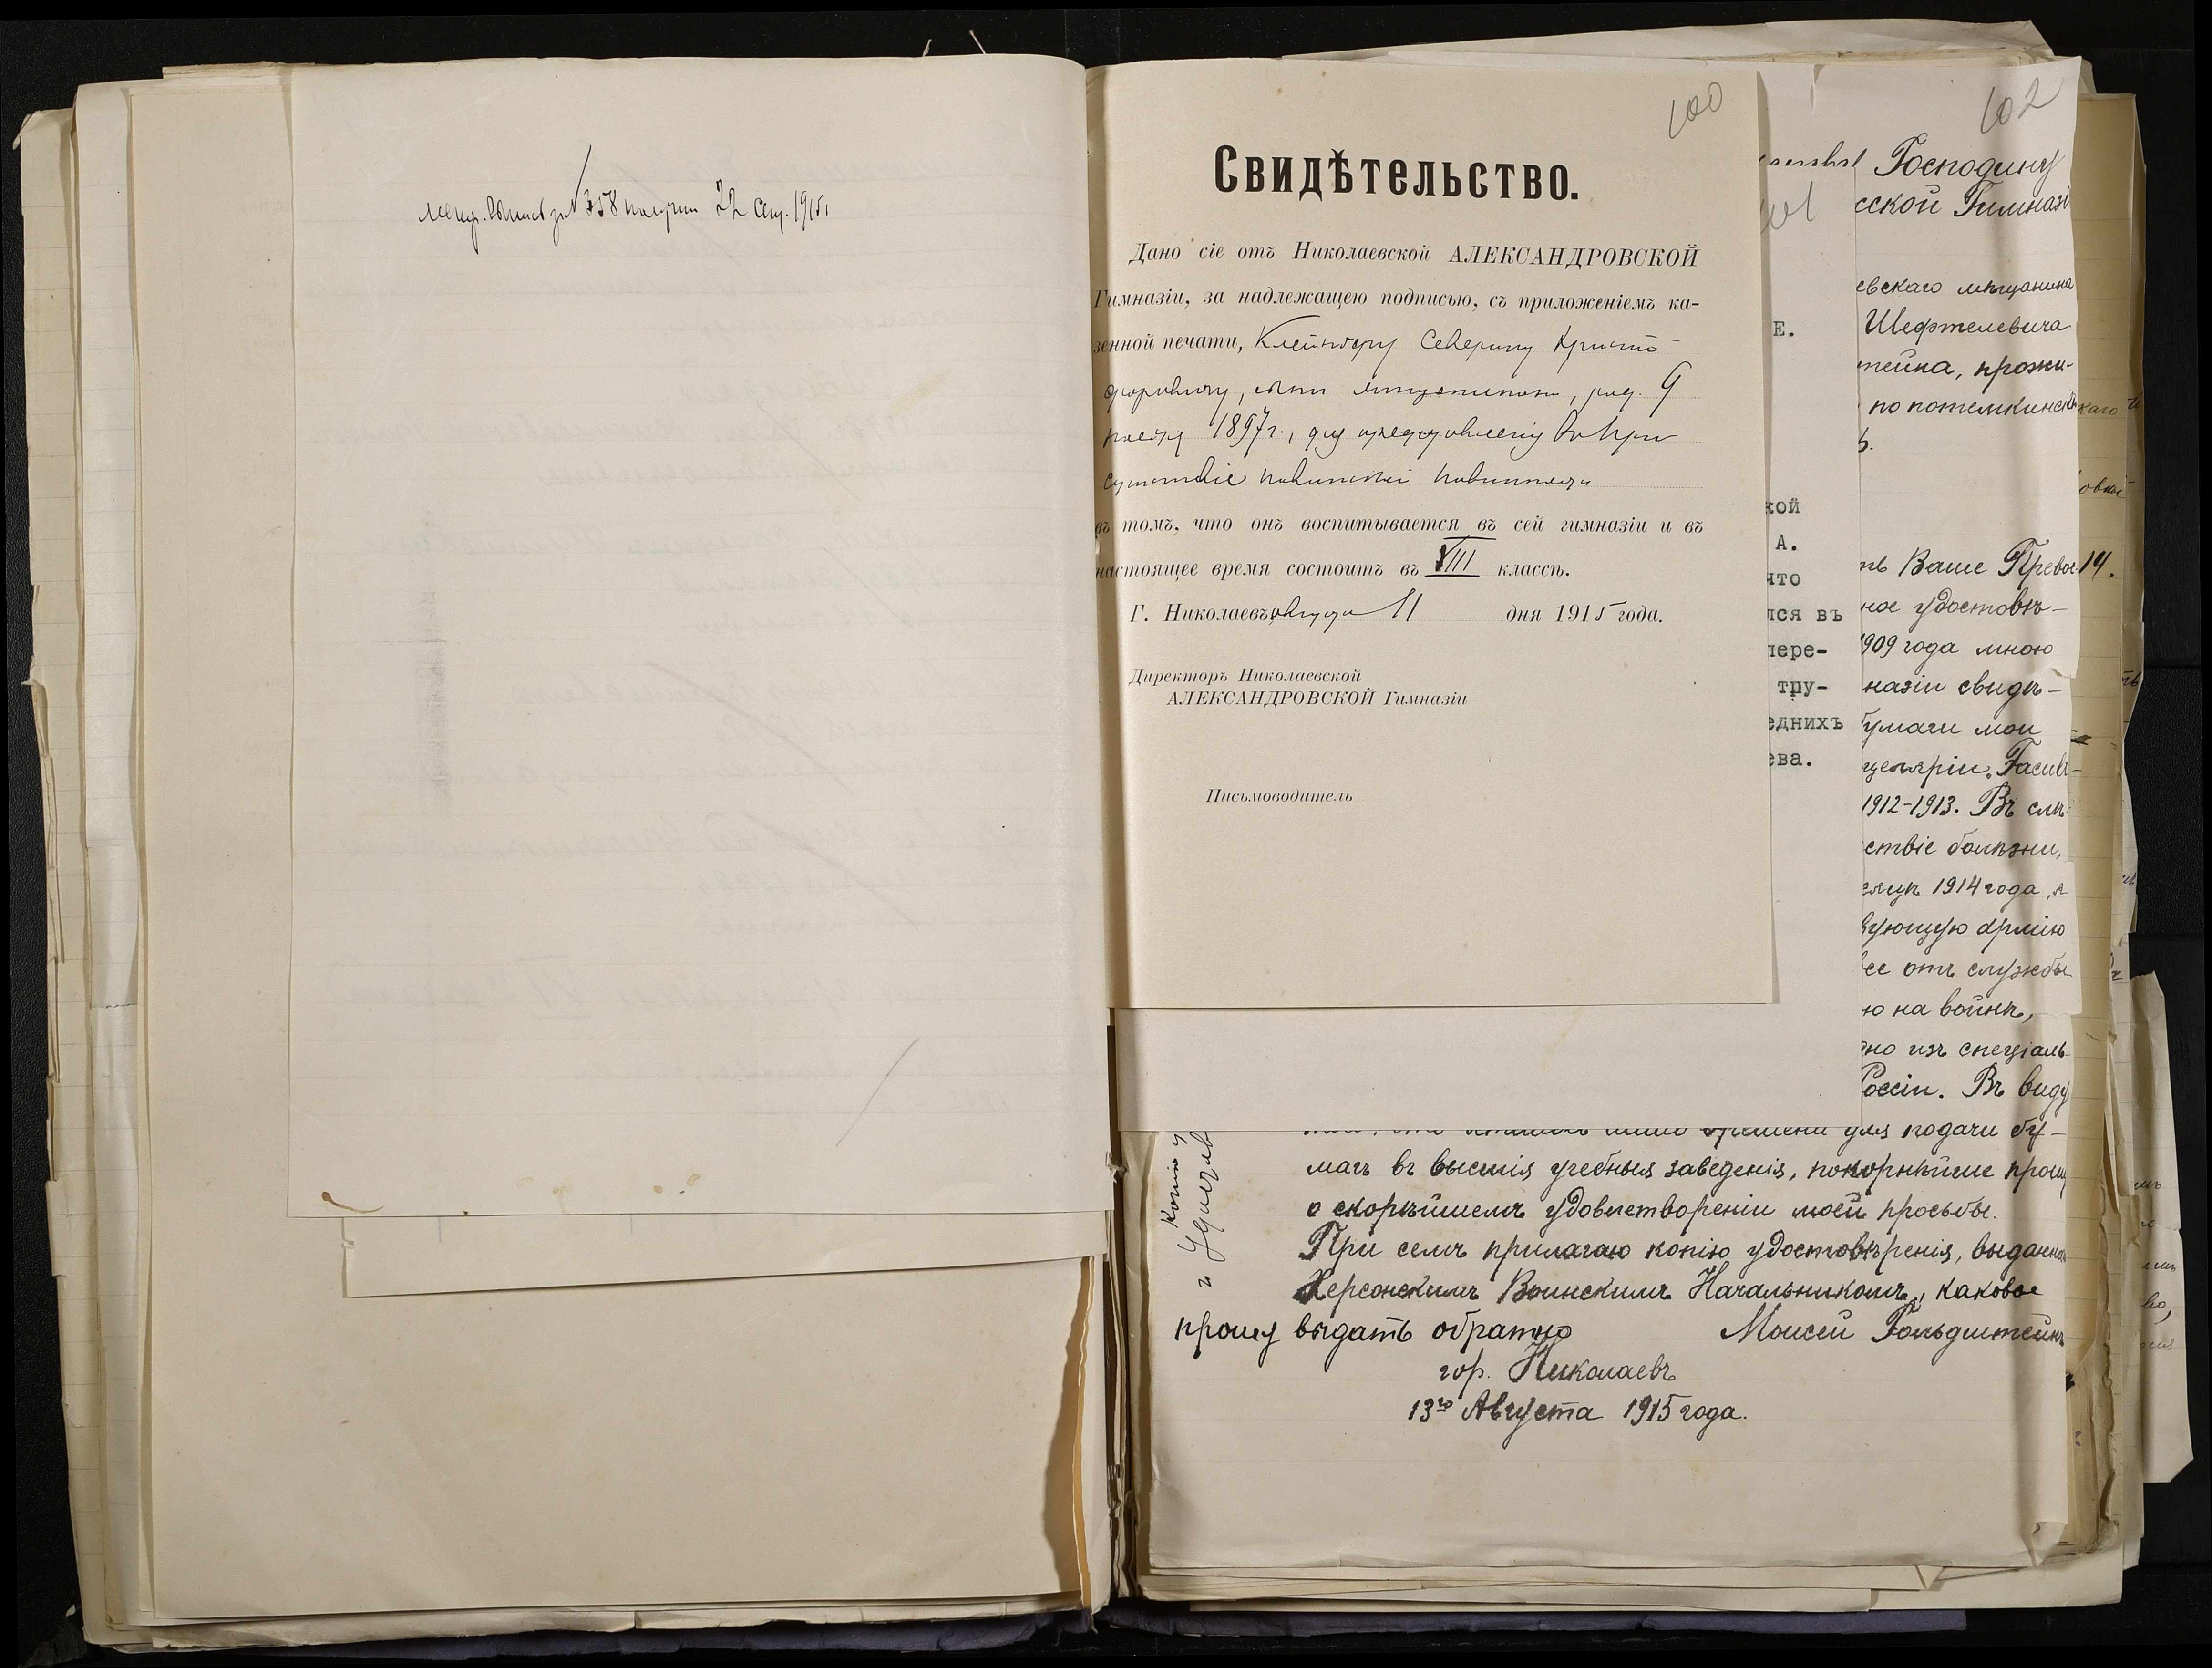 22 Сен. 1915 г.
100
Свидѣтельство.
Дано сіе отъ Николаевской АЛЕКСАНДРОВСКОЙ
Гимназіи, за надлежащею подписью, съ приложеніемъ ка-
зенной печати, Северину Христо-
форовичу, род. 9
1897 г., для представленія въ При
сутствіе по воинской повинности
въ томъ, что онъ воспитывается въ сей гимназіи и въ
настоящее время состоитъ въ VIII классѣ.
Г. Николаевъ, августа 11 дня 1915 года.
Директоръ Николаевской
АЛЕКСАНДРОВСКОЙ Гимназіи
Письмоводитель
101
Е.
кой
А.
что
лся въ
пере-
тру-
еднихъ
ева.
102
Господину
сской Гимназі
евскаго мѣщанина
Шефтелевича
тейна, прожи-
по потемкинской
ть Ваше Превос
ное удостовѣ-
1909 года мною
назіи свидѣ-
бумаги мои
целяріи
1912-1913. Въ слѣ
ствіе болѣзни,
1914 года, я
вующую армію
се отъ службы
ю на войнѣ,
дно изъ спеціаль-
Россіи. Въ виду
времени для подачи бу-
магъ въ высшія учебныя заведенія, покорнѣйше прошу
о скорѣйшемъ удовлетвореніи моей просьбы.
При семъ прилагаю копію удостовѣренія, выданна
Херсонскимъ Воинскимъ Начальникомъ, каковое
прошу выдать обратно Моисей Гольдштейнъ
гор. Николаевъ
13го Августа 1915 года.
Копію
14.